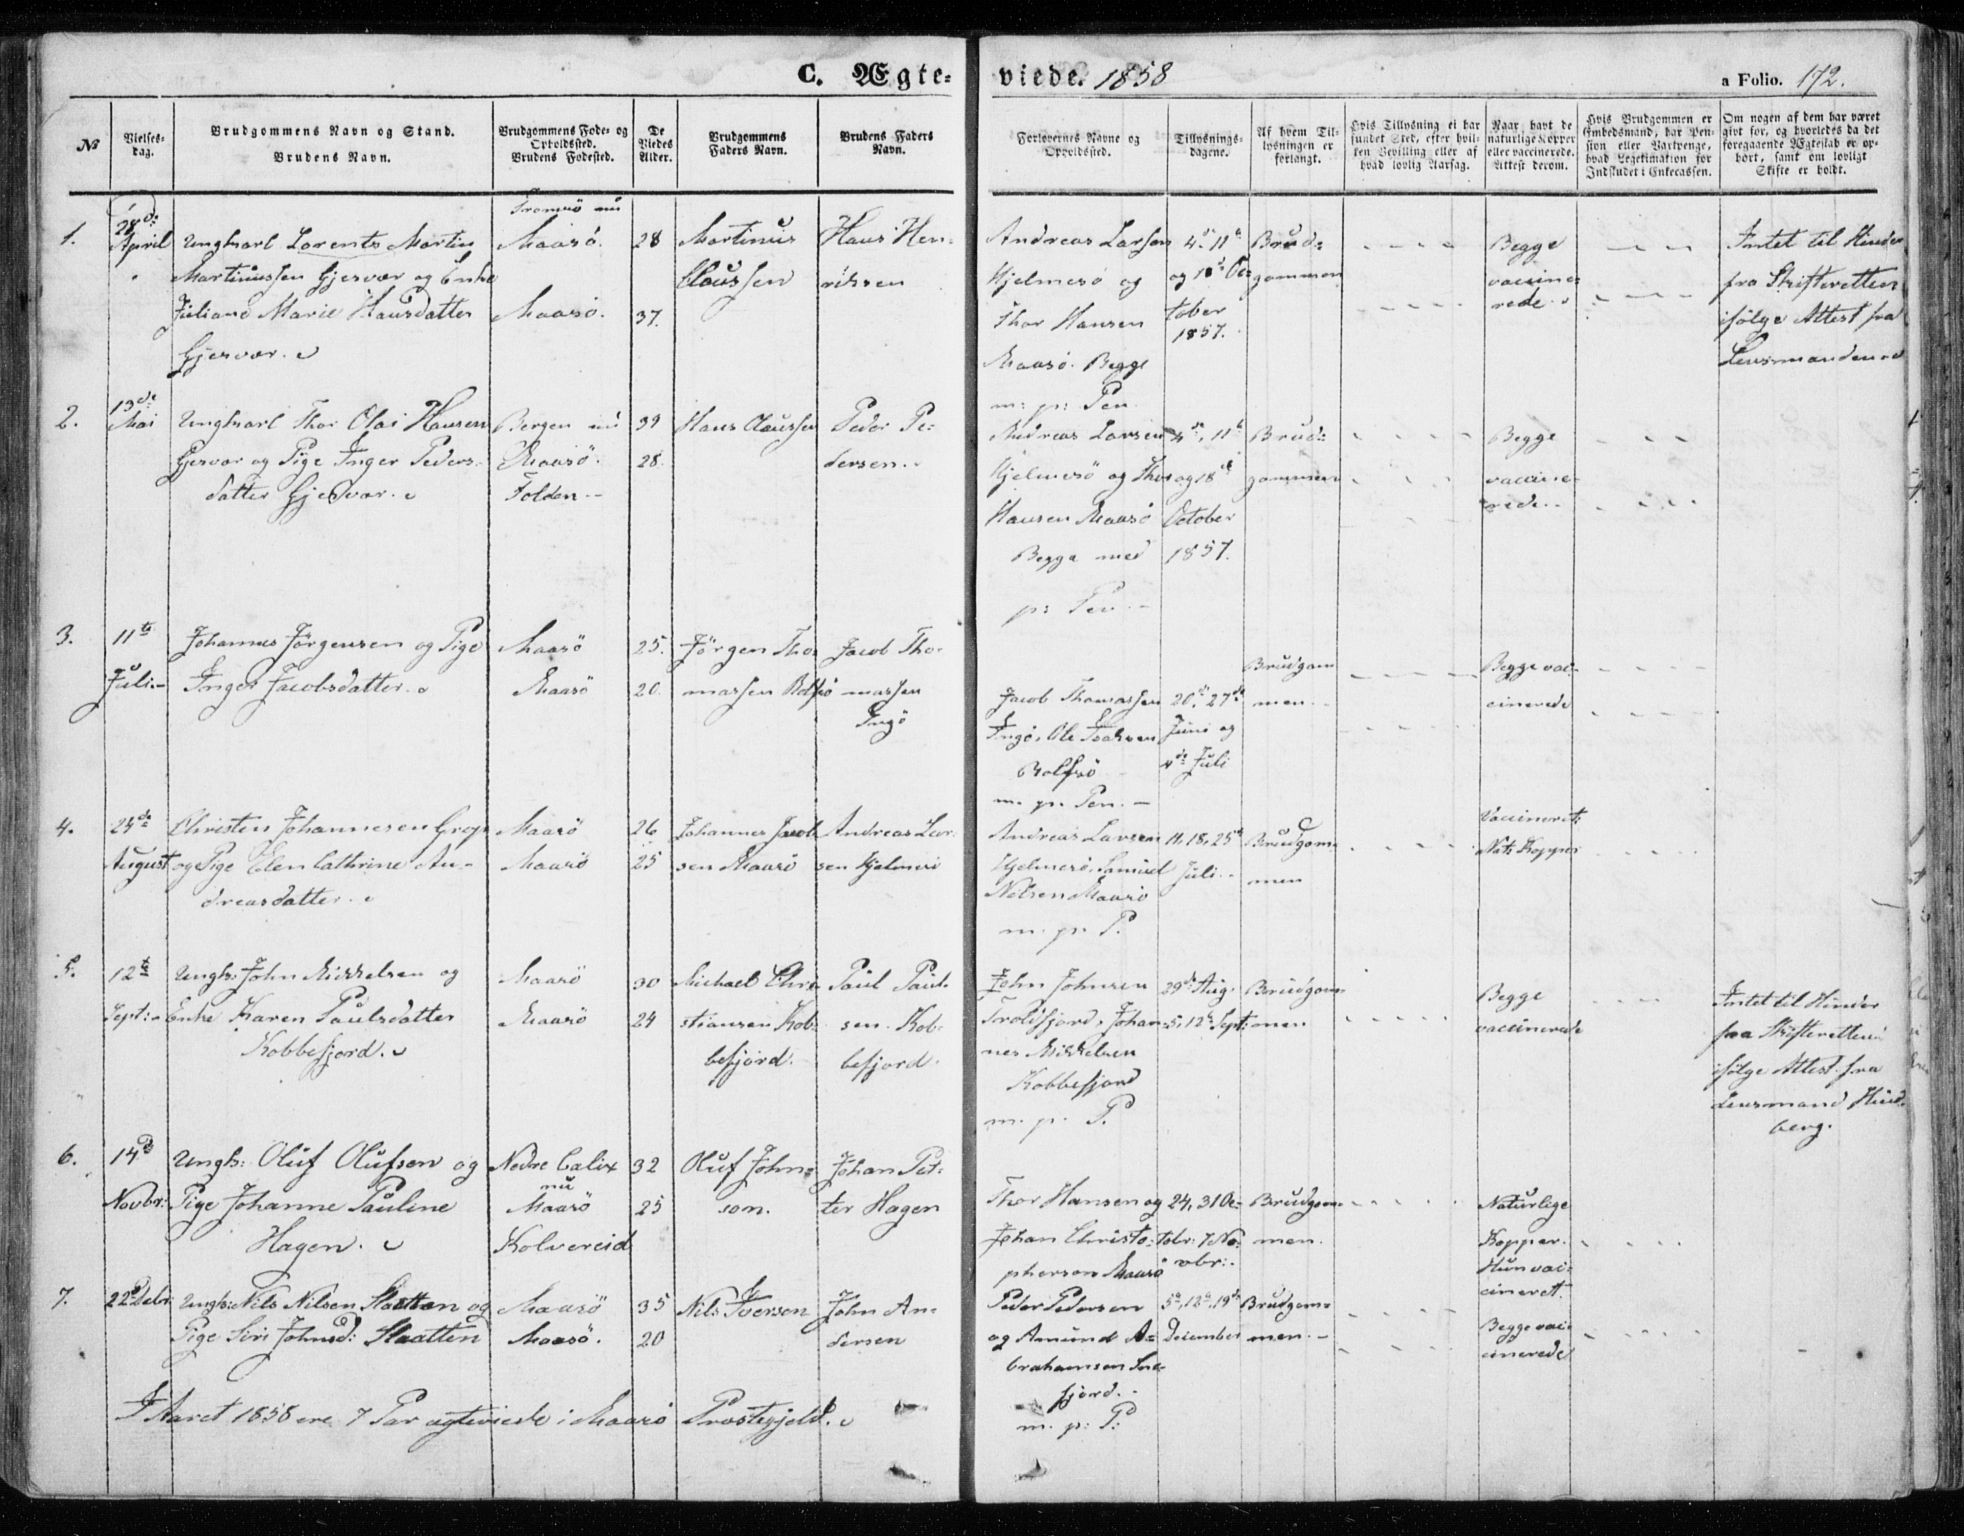 C. Ægte-
viede. 1858
a Folio. 172.
No
Vielses-
dag.
Brudgommens Navn og Stand.
Brudens Navn.
Brudgommens Føde- og
Opholdssted.
Brudens Fødested.
De
Viedes
Alder.
Brudgommens
Faders Navn.
Brudens Faders
Navn.
Forlovernes Navne og
Opholdssted.
Tillysnings-
dagene.
Af hvem Til-
lysningen er
forlangt.
Hvis Tillysning ei har
fundet Sted, efter hvil-
ken Bevilling eller af
hvad lovlig Aarsag.
Naar havt de
naturlige Kopper
eller vaccinerede.
Attest derom.
Hvis Brudgommen er
Embedsmand, har Pen-
sion eller Vartpenge,
hvad Legitimation for
Indskudet i Enkecassen.
Om nogen af dem har været
gift før, og hvorledes da det
foregaaende Ægteskab er op-
hørt, samt om lovligt
Skifte er holdt.
1.
28de
April
Ungkarl Lorents Martin
Martinussen Gjesvær og Enke
Juliane Marie Hansdatter
Gjesvær.
Tromsö nu
Maasö.
Maasö.
28
37.
Martinus
Claussen
Hans Hen-
riksen
Andreas Larsen
Hjelmesö og
Thor Hansen
Maasö. Begge
m: p: Pen
4de 11te
og 18de Oc-
tober
1857.
Brud-
gommen
Begge
vaccine-
rede
Intet til Hinder
fra Skifteretten
ifölge Attest fra
Lensmanden
2.
13de
Mai
Ungkarl Thor Olai Hansen
Gjesvær og Pige Inger Peders-
datter Gjesvær.
Bergen nu
Maasö.
Folden
39
28.
Hans Claussen
Peder Pe-
dersen.
Andreas Larsen
Hjelmesö og Thor
Hansen Maasö
Begge med
p: Pen.
4de, 11te
og 18de
October
1857.
Brud-
gommen
Begge
vaccine-
rede.
3.
11te
Juli.
Johannes Jörgensen og Pige
Inger Jacobsdatter.
Maasö
Maasö
25.
20.
Jörgen Tho-
massen Rolfsö
Jacob Tho-
massen
Ingö
Jacob Thomassen
Ingö, Ole Isaksen
Rolfsö
m. p. Pen.
20de, 27de
Juni og
4de Juli
Brudgom
men.
Begge vac-
cinerede
4.
24de
August
Christen Johannesen
og Pige Elen Cathrine An-
dreasdatter.
Maasö
Maasö
26
25
Johannes Jacob-
sen Maasö
Andreas Lar-
sen Hjelmesö
Andreas Larsen
Hjelmesö, Samuel
Nelsen Maasö
m. p. P.
11, 18, 25de
Juli.
Brudgom-
men
Vaccineret
Nat. Kopper
5.
12te
Sept:
Ungk: John Mikkelsen og
Enke Karen Paulsdatter
Kobbefjord.
Maasö
Maasö
30
24
Michael Chri-
stiansen Kob-
befjord.
Paul Paul-
sen. Kob-
befjord.
John Johnsen
Troldfjord, Johan-
nes Mikkelsen
Kobbefjord
m. p. P.
29de Aug.
5, 12te Sept:
Brudgom-
men
Begge
vaccinerede
Intet til Hinder
fra Skifteretten
ifölge Attest fra
Lensmand Hind-
berg.
6.
14d
Novbr:
Ungk: Oluf Olufsen og
Pige Johanne Pauline
Hagen.
Nedre Calix
nu
Maasö
Kolvereid
32
25
Oluf John-
son.
Johan Pet-
ter Hagen
Thor Hansen og
Johan Christo-
phersen Maasö
24, 31 Oc-
tobr: 7 No-
vbr:
Brudgom-
men.
Naturlige
Kopper.
Hun vac-
cineret.
7.
22d Debr:
Ungk: Nils Nilsen Slaatten og
Pige Siri Johnsd: Slaatten
Maasö
Maasö.
35
20
Nils Iversen
John An-
dersen
Peder Pedersen
og Amund A-
brahamsen Sne-
fjord.
m. p: P:
5te, 12te, 19de
December
Brudgom-
men.
Begge vac-
cinerede
I Aaret 1858 ere 7 Par ægteviede i Maasö Præstegjeld.